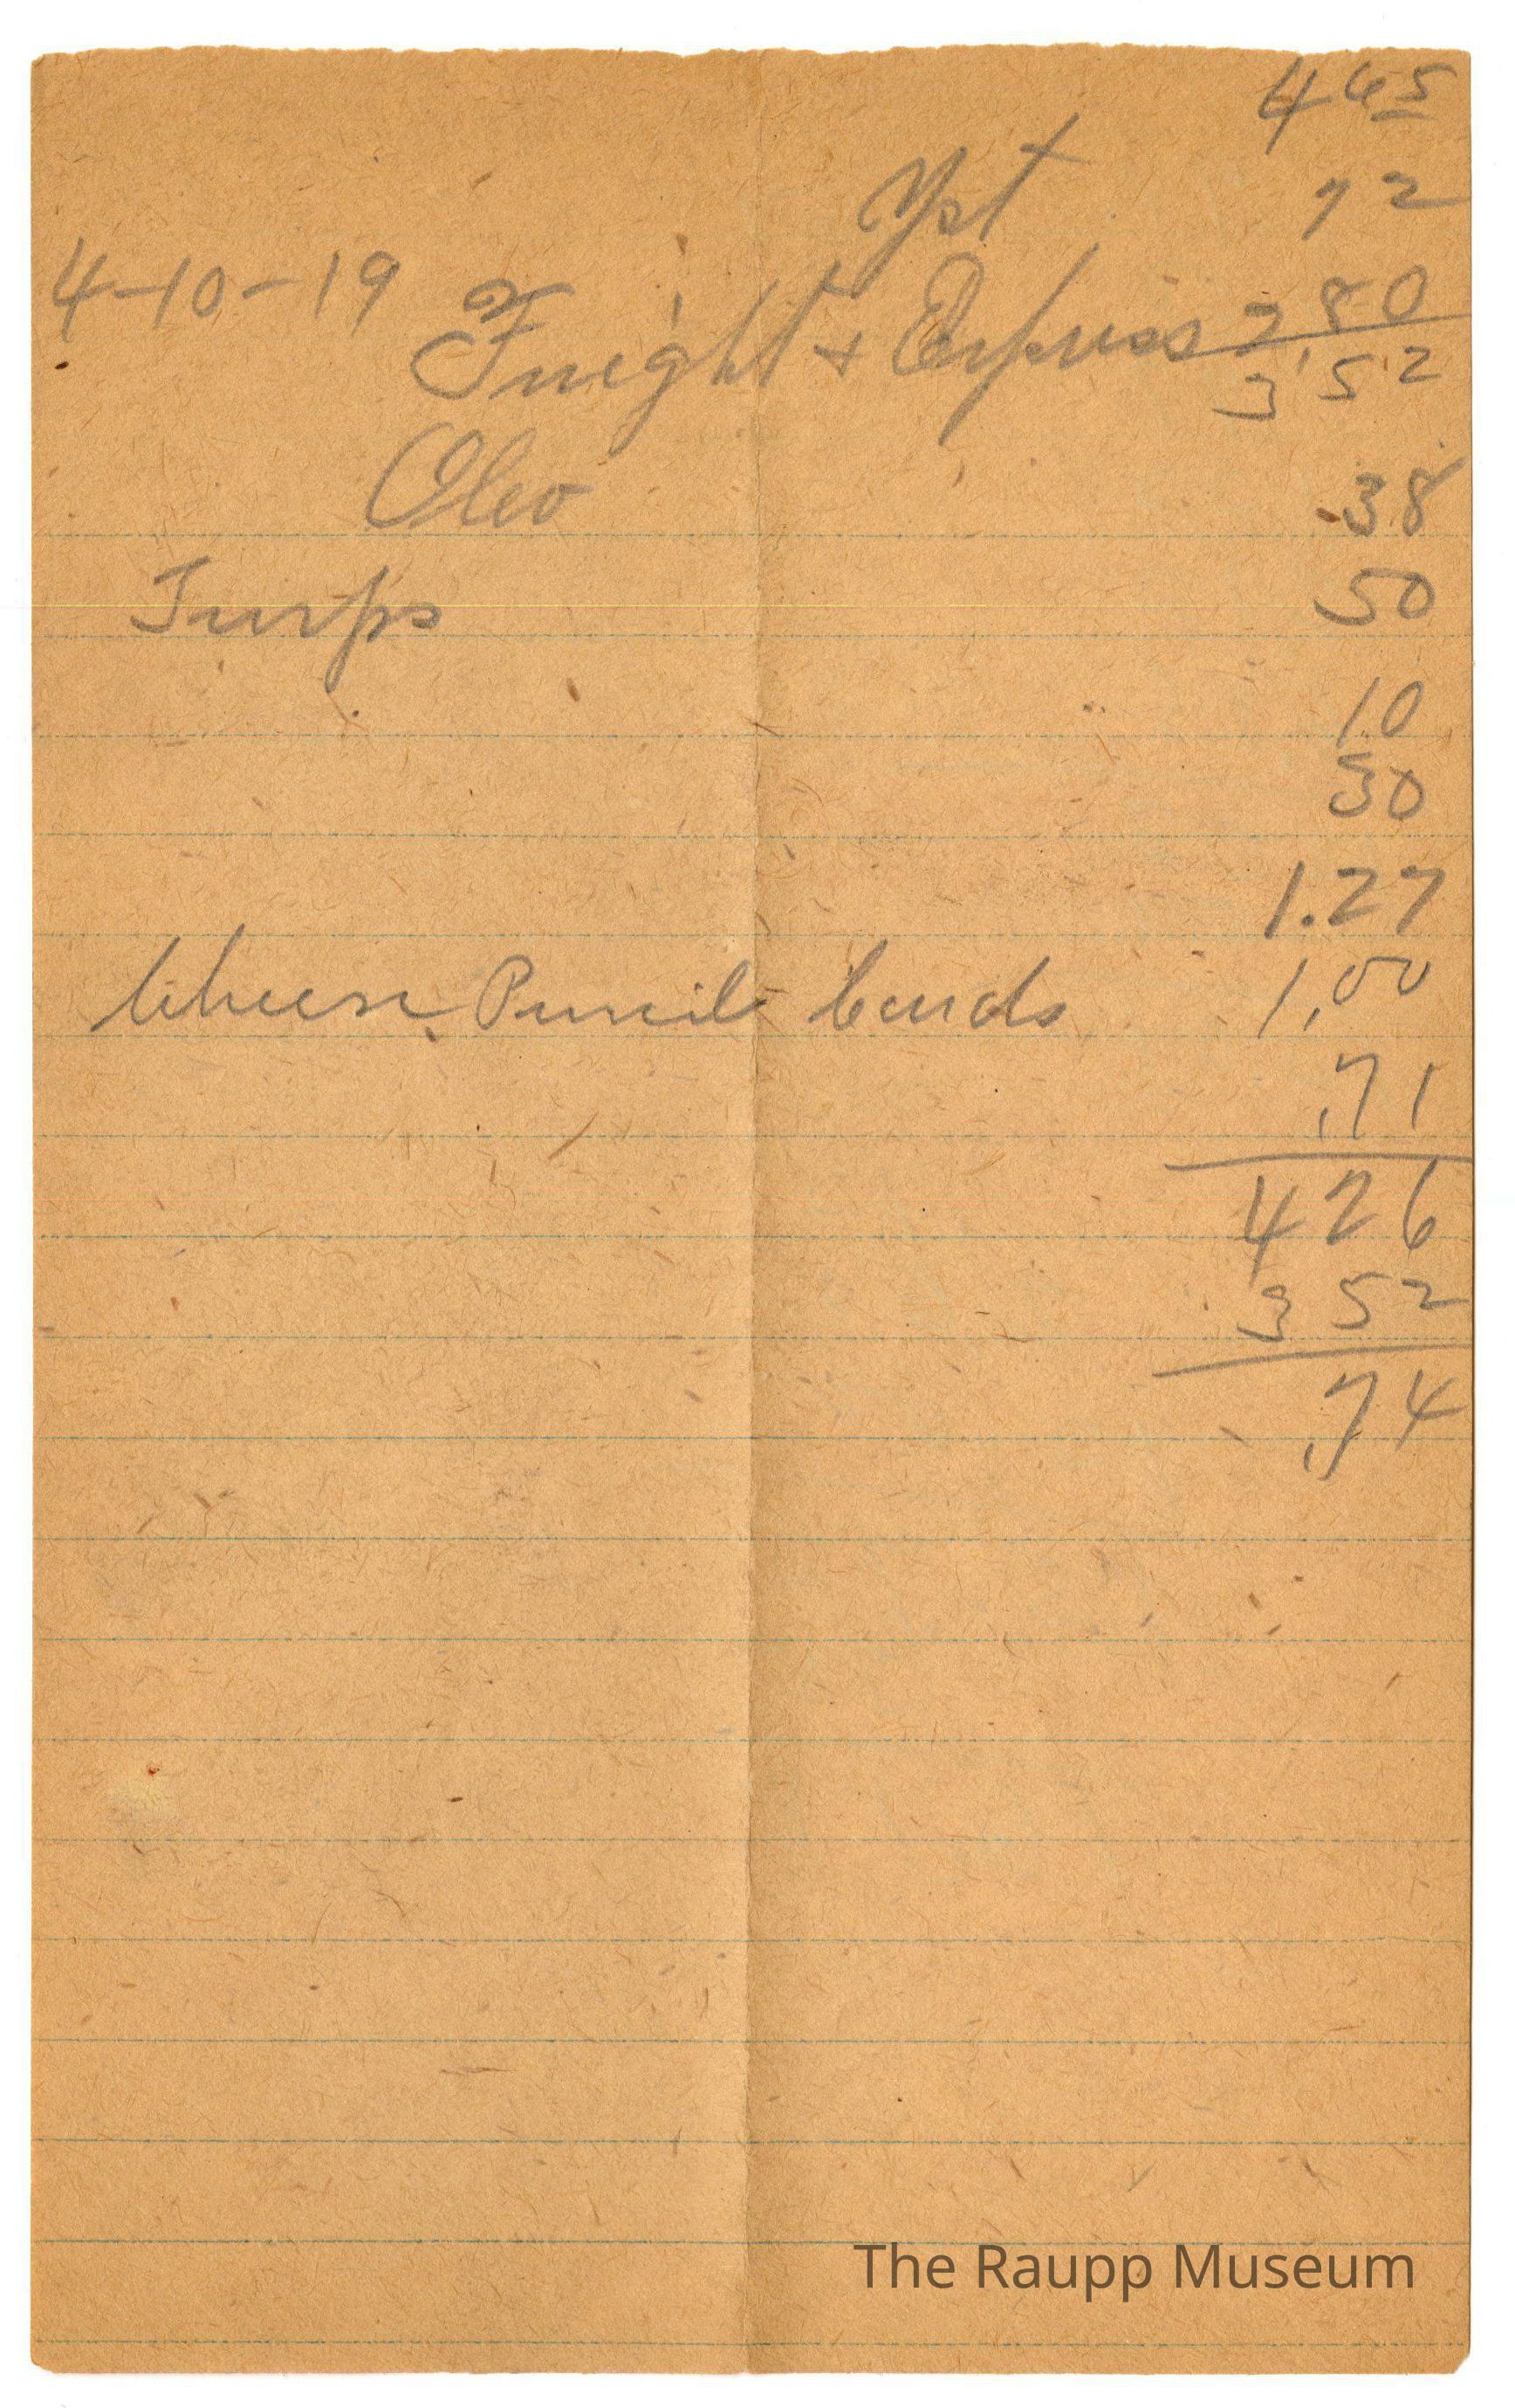 4 65
Yst 72
4-10-19 Freight + Express 2 80
3 52
Oleo .38
Turps 50
10
30
1.27
Cheese Pencil Cards 1,00
.71
4 26
3 52
.74
The Raupp Museum